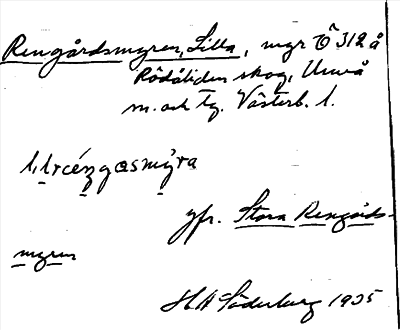 Rengårdsmyren, Lilla, myr Ö 312 å
Rödåliden skog, Umeå
m. och tg. Västerb. l.
yfr. Stora Rengårds-
myren
H A Söderberg 1935